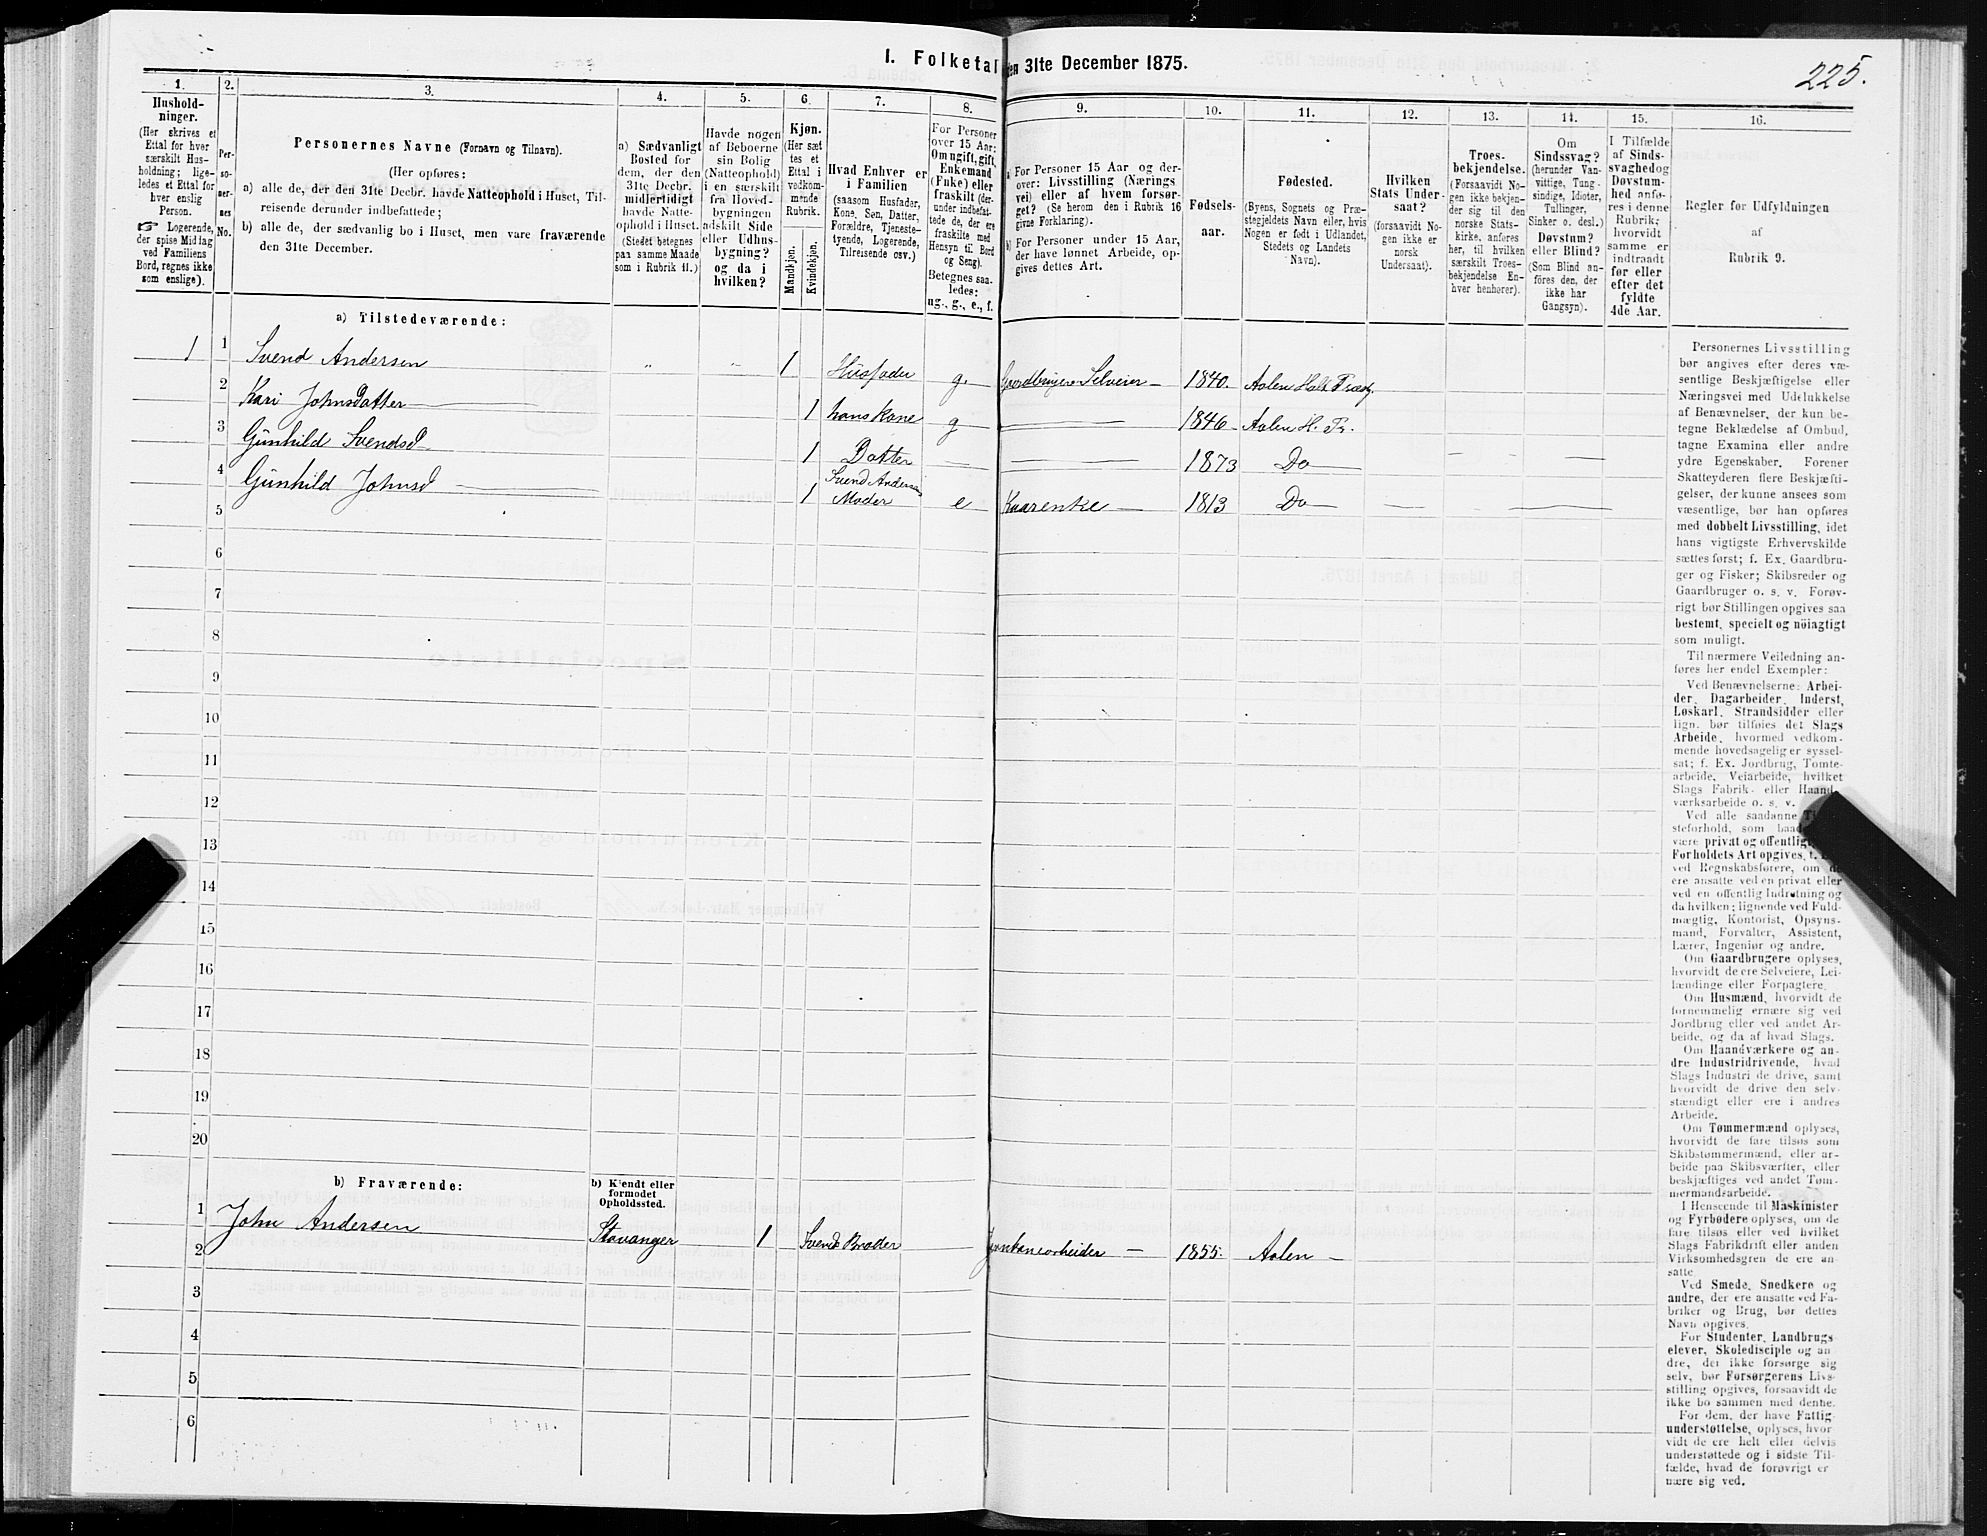 I. Folketal
den 31te December 1875.
225.
1.
Hushold-
ninger.
(Her skrives et
Ettal for hver
særskilt Hus-
holdning; lige-
ledes et Ettal for
hver enslig
Person.
Logerende,
der spise Middag
ved Familiens
Bord, regnes ikke
som enslige).
2.
Per-
so-
ner-
nes
No.
3.
Personernes Navne (Fornavn og Tilnavn).
(Her opføres:
a) alle de, der den 31te Decbr. havde Natteophold i Huset, Til-
reisende derunder indbefattede;
b) alle de, der sædvanlig bo i Huset, men vare fraværende
den 31te December.
4.
a) Sædvanligt
Bosted for
dem, der den
31te Decbr.
midlertidigt
havde Natte-
ophold i Huset.
(Stedet betegnes
paa samme Maade
som i Rubrik 11.)
5.
Havde nogen
af Beboerne
sin Bolig
(Natteophold)
i en særskilt
fra Hoved-
bygningen
adskilt Side
eller Udhus-
bygning?
og da i
hvilken?
6.
Kjøn.
(Her sæt
tes et
Ettal i
vedkom-
mende
Rubrik.
Mandkjøn.
Kvindekjøn.
7.
Hvad Enhver er
i Familien
(saasom Husfader,
Kone, Søn, Datter,
Forældre, Tjeneste-
tyende, Logerende,
Tilreisende osv.)
8.
For Personer
over 15 Aar:
Om ugift, gift,
Enkemand
(Enke) eller
fraskilt (der-
under indbefat-
tede de, der ere
fraskilte med
Hensyn til Bord
og Seng).
Betegnes saa-
ledes:
ug., g., e., f.
9.
a) For Personer 15 Aar og der-
over: Livsstilling (Nærings
vei) eller af hvem forsør-
get? (Se herom den i Rubrik 16
givne Forklaring).
b) For Personer under 15 Aar,
der have lønnet Arbeide, op-
gives dettes Art.
10.
Fødsels-
aar.
11.
Fødested.
(Byens, Sognets og Præ-
stegjeldets Navn eller, hvis
Nogen er født i Udlandet,
Stedets og Landets
Navn).
12.
Hvilken
Stats Under-
saat?
(forsaavidt No-
gen ikke er
norsk
Undersaat).
13.
Troes-
bekjendelse.
(Forsaavidt No-
gen ikke bekjen-
der sig til den
norske Stats-
kirke, anføres
her, til hvilken
særskilt Troes-
bekjendelse En-
hver henhører).
14.
Om
Sindssvag?
(herunder Van-
vittige, Tung-
sindige, Idioter,
Tullinger,
Sinker o. desl.)
Døvstum?
eller Blind?
(Som Blind an-
føres den, der
ikke har
Gangsyn).
15.
I Tilfælde
af Sinds-
svaghed og
Døvstum-
hed anfø-
res i denne
Rubrik,
hvorvidt
samme er
indtraadt
før eller
efter det
fyldte
4de Aar.
16.
Regler for Udfyldningen
af
Rubrik 9.
a) Tilstedeværende:
1 1 Svend Andersen 1 Husfader g. Gaardbruger Selveier 1840. Aalen Holt Præstg.
2 Kari Johnsdatter 1 hans Kone g 1846 Aalen H. Pr.
3 Gunhild Svendsd 1 Datter 1873 Do
4 Gunhild Johnsd 1 Svend Andersens Moder e Kaarenke 1813 Do
5
6
7
8
9
10
11
12
13
14
15
16
17
18
19
20
b) Fraværende:
b) Kjendt eller
formodet
Opholdssted.
1 John Andersen Stavanger 1 Svends Broder Jernbanearbeider 1855. Aalen
2
3
4
5
6
Personernes Livsstilling
bør angives efter deres væ-
sentlige Beskjæftigelse eller
Næringsvei med Udelukkelse
af Benævnelser, der kun be-
tegne Beklædelse af Ombud,
tagne Examina eller andre
ydre Egenskaber. Forener
Skatteyderen flere Beskjæfti-
gelser, der kunne ansees som
væsentlige, bør han opføres
med dobbelt Livsstilling, idet
hans vigtigste Erhvervskilde
sættes først; f. Ex. Gaardbru-
ger og Fisker; Skibsreder og
Gaardbruger o. s. v. Forøv-
rigt bør Stillingen opgives saa
bestemt, specielt og nöiagtigt
som muligt.
Til nærmere Veiledning an-
føres her endel Exempler:
Ved Benævnelserne: Arbei-
der, Dagarbeider, Inderst,
Løskarl, Strandsidder eller
lign. bør tilføies det Slags
Arbeide, hvormed vedkom-
mende hovedsagelig er syssel-
sat; f. Ex. Jordbrug, Tomte-
arbeide, Veiarbeide, hvilket
Slags Fabrik- eller Haand-
værksarbeide o. s. v.
Ved alle saadanne
steforhold, som
være privat og offentligt,
Forholdets Art opgives,
ved Regnskabsførere, om de
ere ansatte ved en privat eller
ved en offentlig Indretning og
da hvilken; lignende ved Fuld-
mægtig, Kontorist, Opsyns-
mand, Forvalter, Assistent,
Lærer, Ingeniør og andre.
Om Gaardbrugere oplyses,
hvorvidt de ere Selveiere, Lei-
lændinge eller Forpagtere.
Om Husmænd, hvorvidt de
fornemmelig ernære sig ved
Jordbrug eller ved andet Ar-
beide, og da af hvad Slags.
Om Haandværkere og an-
dre Industridrivende, hvad
Slags Industri de drive, samt
hvorvidt de drive den selv-
stændigt eller ere i andres
Arbeide.
Om Tømmermænd oplyses,
hvorvidt de fare tilsøs som
Skibstømmermænd, eller ar-
beide paa Skibsværfter, eller
beskjæftiges ved andet Tøm-
mermandsarbeide.
I Henseende til Maskinister
og Fyrbødere oplyses, om de
fare tilsøs eller ved hvilket
Slags Fabrikdrift eller anden
Virksomhedsgren de ere an-
satte.
Ved Smede, Snedkere og
andre, der ere ansatte ved Fa-
briker og Brug, bør dettes
Navn opgives.
For Studenter, Landbrugs
elever, Skoledisciple og an
dre, der ikke forsørge sig
selv, bør Forsørgerens Livs-
stilling opgives, forsaavidt de
ikke bo sammen med denne.
For dem, der have Fattig-
understøttelse, oplyses, hvor
vidt de ere helt eller delvis
understøttede og i sidste Til-
fælde, hvad de forøvrigt er
nære sig ved.